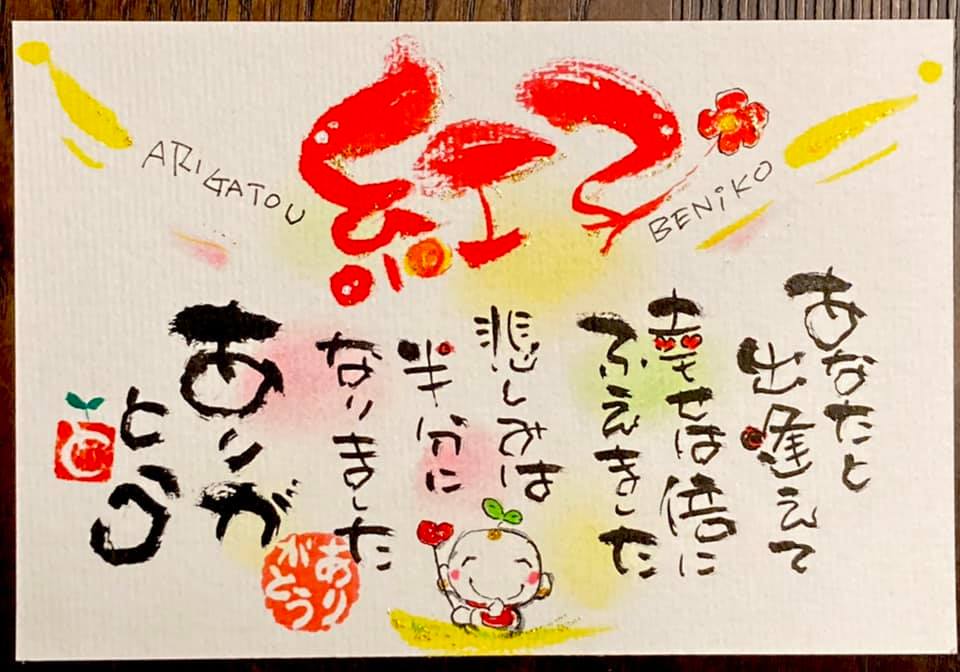 紅子
ARIGATOU
BENiKO
あなたと
出逢えて
幸せは倍に
ふえました
悲しみは
半分に
なりました
ありが
とう
ありがとう